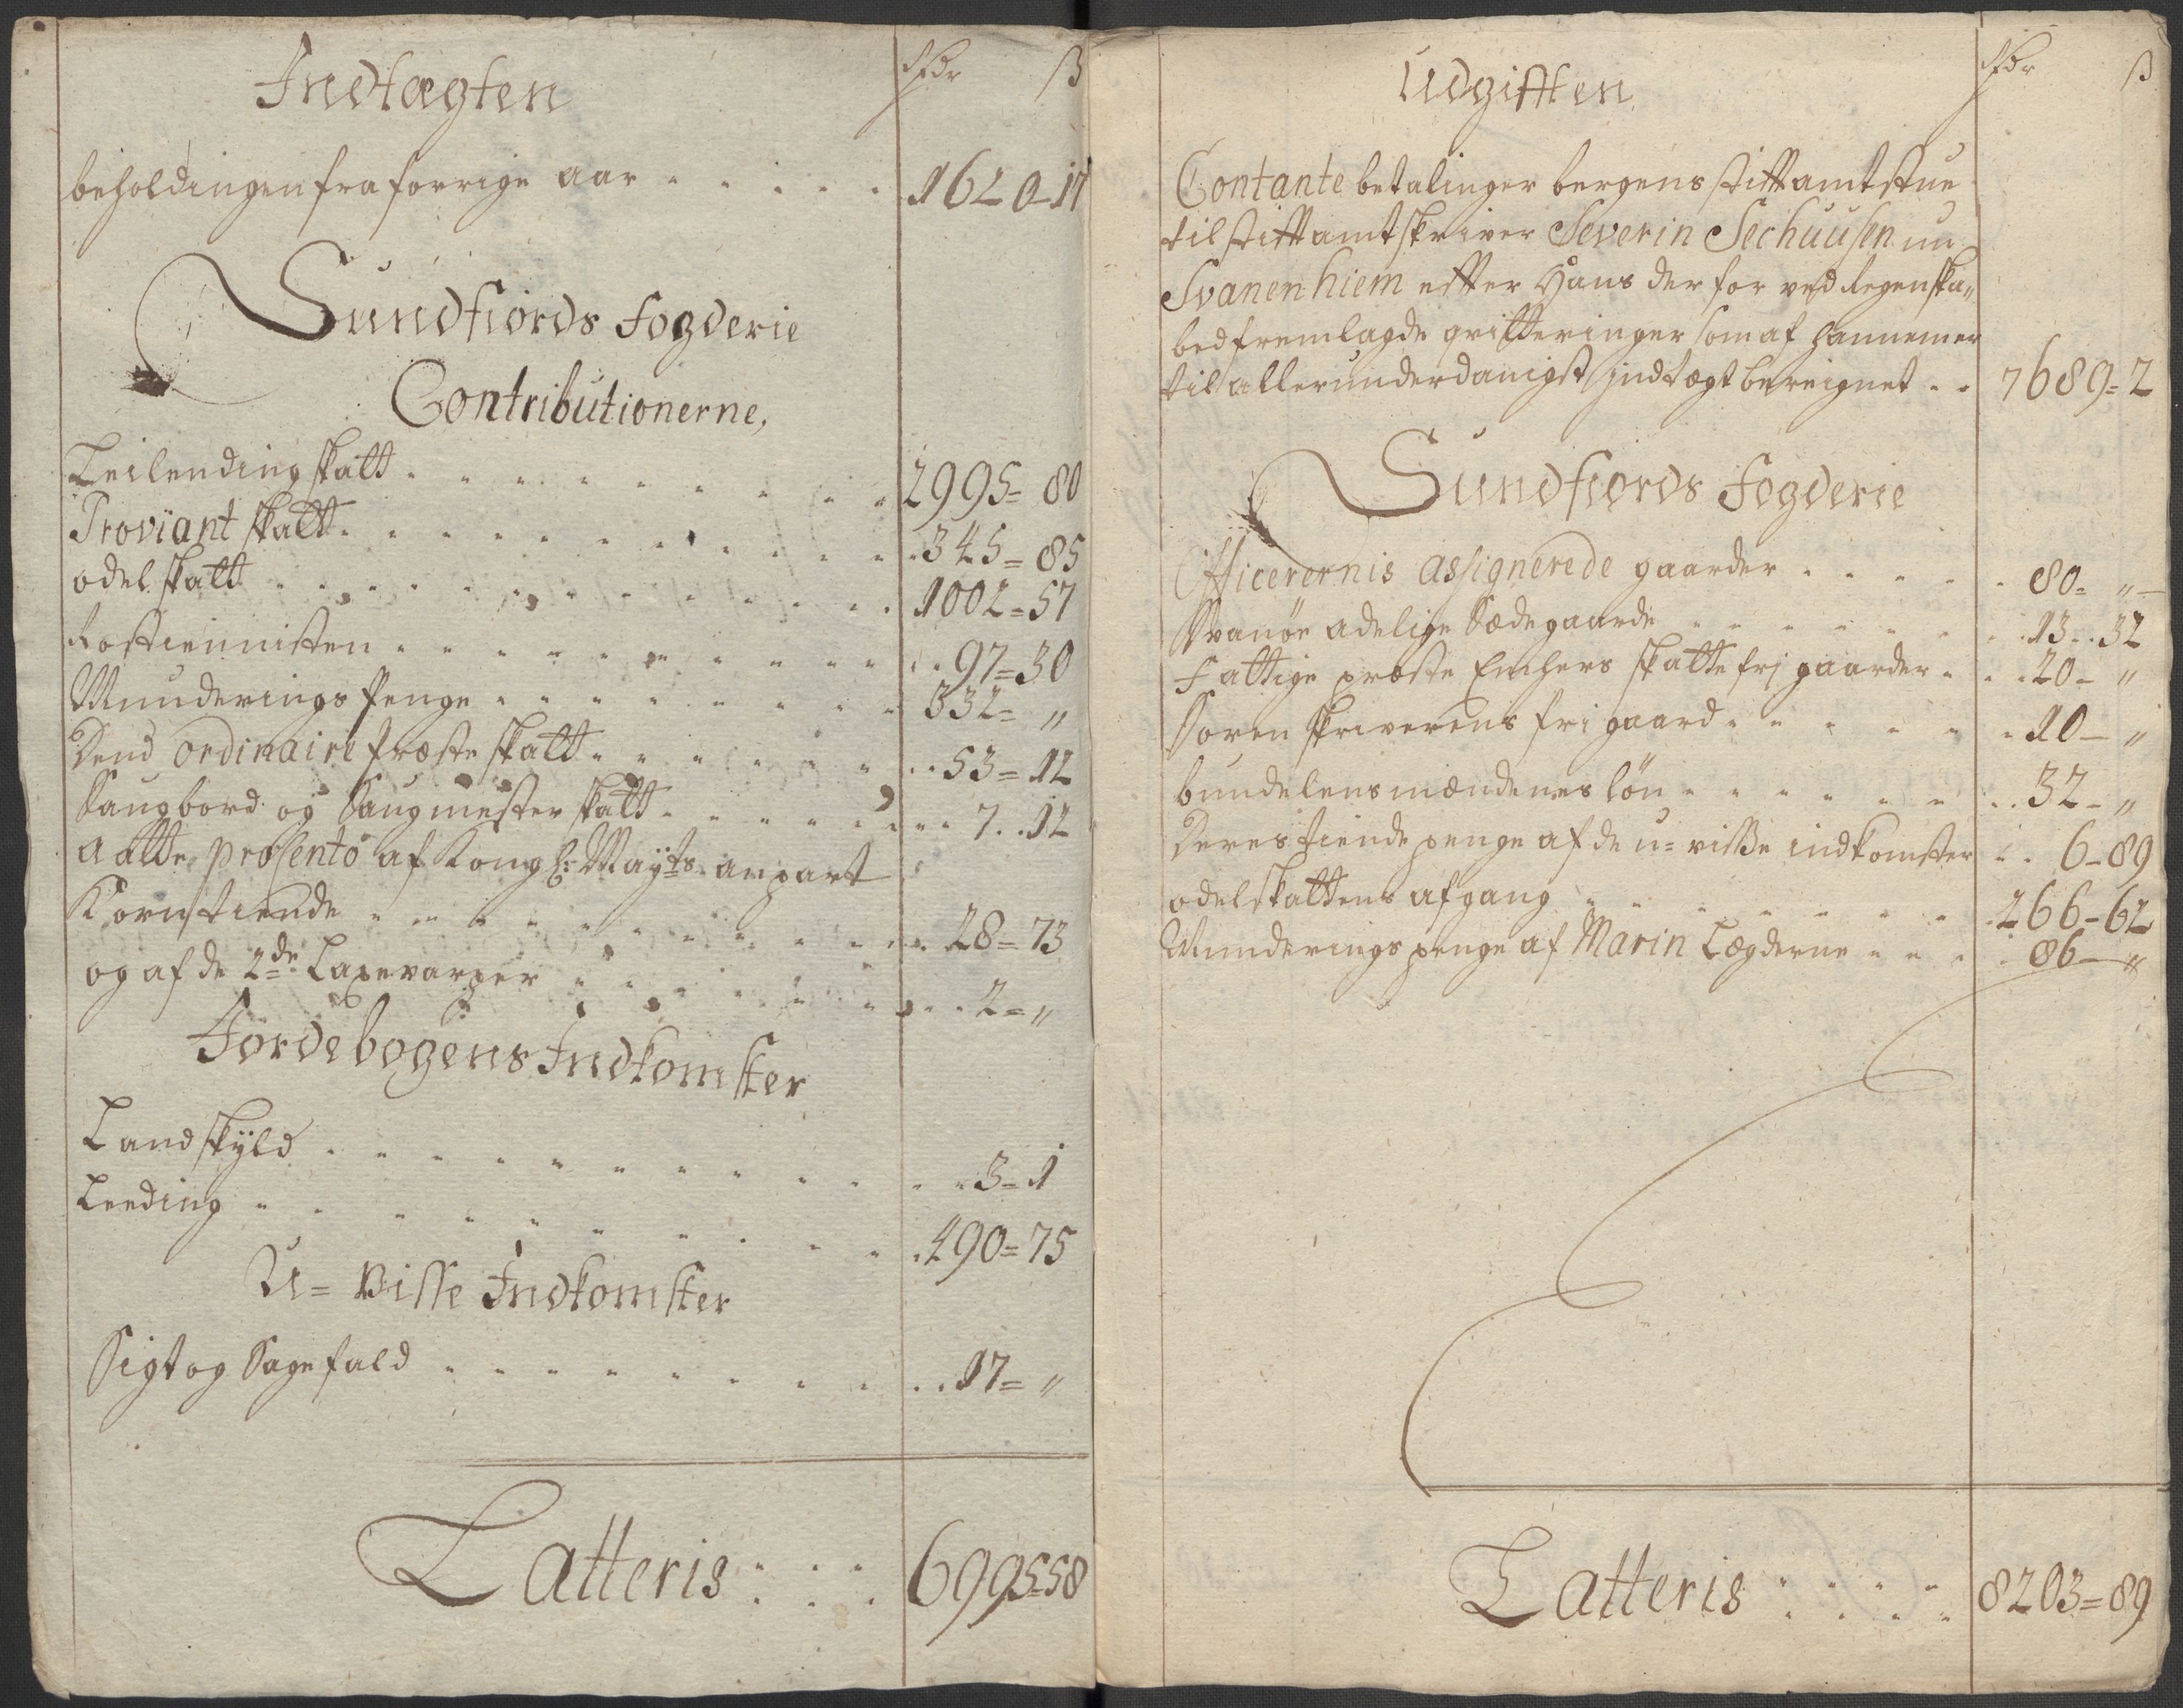 Indtægten
Rdr ß
beholdingen fra forrige aar . . . . . 1620-17
Sundfiords Fogderie
Contributionerne,
Leilendingskatt . . . . . . . . . 2995= 80
Proviant skatt . . . . . . . . . . 345= 85
odel skatt . . . . . . . . . . . 1002=57
Rostiennisten . . . . . . . . . . 97=30
Munderings Penge . . . . . . . . 332= "
Dend ordinaire Præste skatt . . . . . . . 53=12
Saugbord og Saugmester skatt . . . . . . . 7..12
Aatte prosento af Kongl: Mayts anpart
Korntiende . . . . . . . . . . . 28=73
og af de 2de Laxevarper . . . . . . . . 2= "
Jordebogens Indkomster
Landskyld . . . . . . . . . . . 3=1
Leeding . . . . . . . . . . . 490=75
U= Visse Indkomster
Sigt og Sagefald . . . . . . . . . . 17= "
Latteris : . . . 6995=58
Udgifften
Rdr ß
Contante betalinger bergens stifftamtstue
til stifftamtskriver Severin Sechuusen nu
Svanenhiem effter Hans der for ved Regenska„
bed fremlagde qvitteringer som af hannem er
til allerunderdanigst jndtægt beregnet . . 7689=2
Sundfiords Fogderie
Officerernis assignerede gaarder . . . . . 80= "
Svanöe adelige Sædegaarde . . . . . . . 13..32
Fattige præste Enchers skatte frj gaarder . . . 20- "
Soren skriverens fri gaard . . . . . . 10- "
bundelensmændenes lön . . . . . . . 32- "
Deres tiende penge af de u= visse indkomster . . 6-89
odelskattens afgang . . . . . . . 266-62
Munderings penge af Marin Lægderne . . . . 86- "
Latteris : . . . . 8203=89